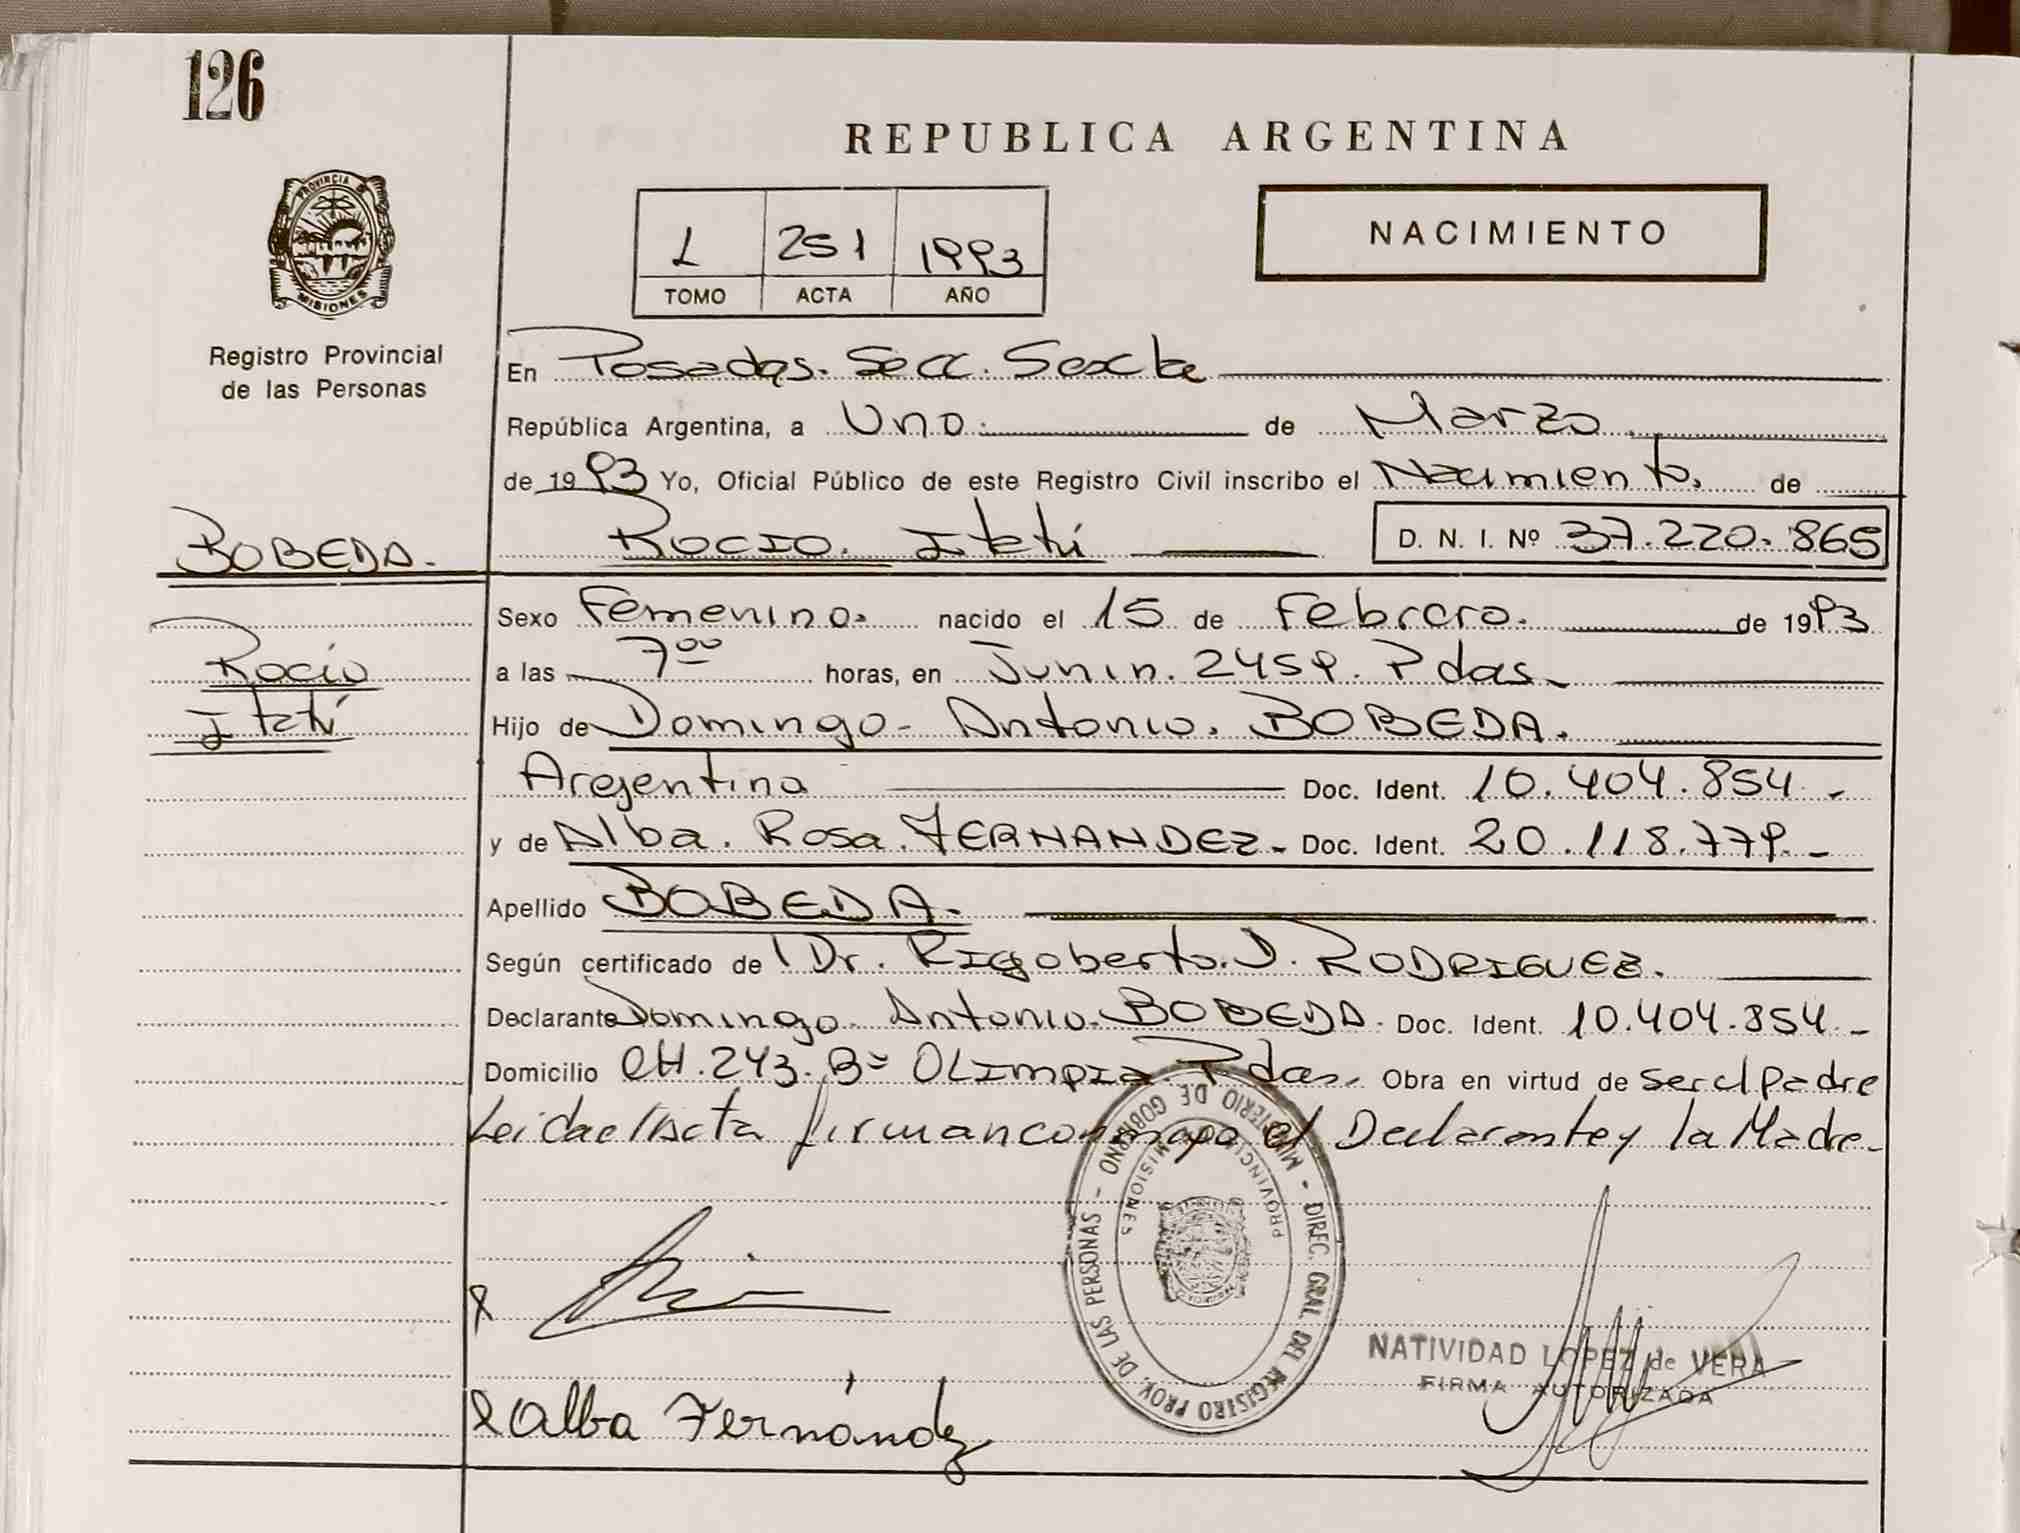 126
REPUBLICA ARGENTINA
PROVINCIA DE
MISIONES
Registro Provincial
de las Personas
1 251 1993
TOMO ACTA AÑO
NACIMIENTO
En Posadas. Secc. Sexta
República Argentina, a Uno. de Marzo
de 1993 Yo, Oficial Público de este Registro Civil inscribo el Nacimiento. de
BOBEDA. ROCIO. Itatí D. N. I. Nº 37.220.865
Sexo Femenino. nacido el 15 de Febrero. de 1993
Rocío a las 7 00 horas, en Junin. 2459. Pdas.
Itatí Hijo de Domingo- Antonio. BOBEDA.
Arejentina Doc. Ident. 10.404.854.-
y de Alba. Rosa. FERNANDEZ- Doc. Ident. 20.118.779.-
Apellido BOBEDA.
Según certificado de Dr. Rigoberto. D. RODRIGUEZ.
Declarante Domingo. Antonio. BOBEDA. Doc. Ident. 10.404.854-
Domicilio CH. 243. Bº OLIMPIA Pdas. Obra en virtud de ser el Padre
Leida el Acta firman conmigo el Declarante y la Madre.
MINISTERIO DE GOBIERNO - DIREC. GRAL. DEL REGISTRO PROV. DE LAS PERSONAS -
PROVINCIA DE MISIONES
NATIVIDAD LOPEZ de VERA
FIRMA AUTORIZADA
Alba Fernández